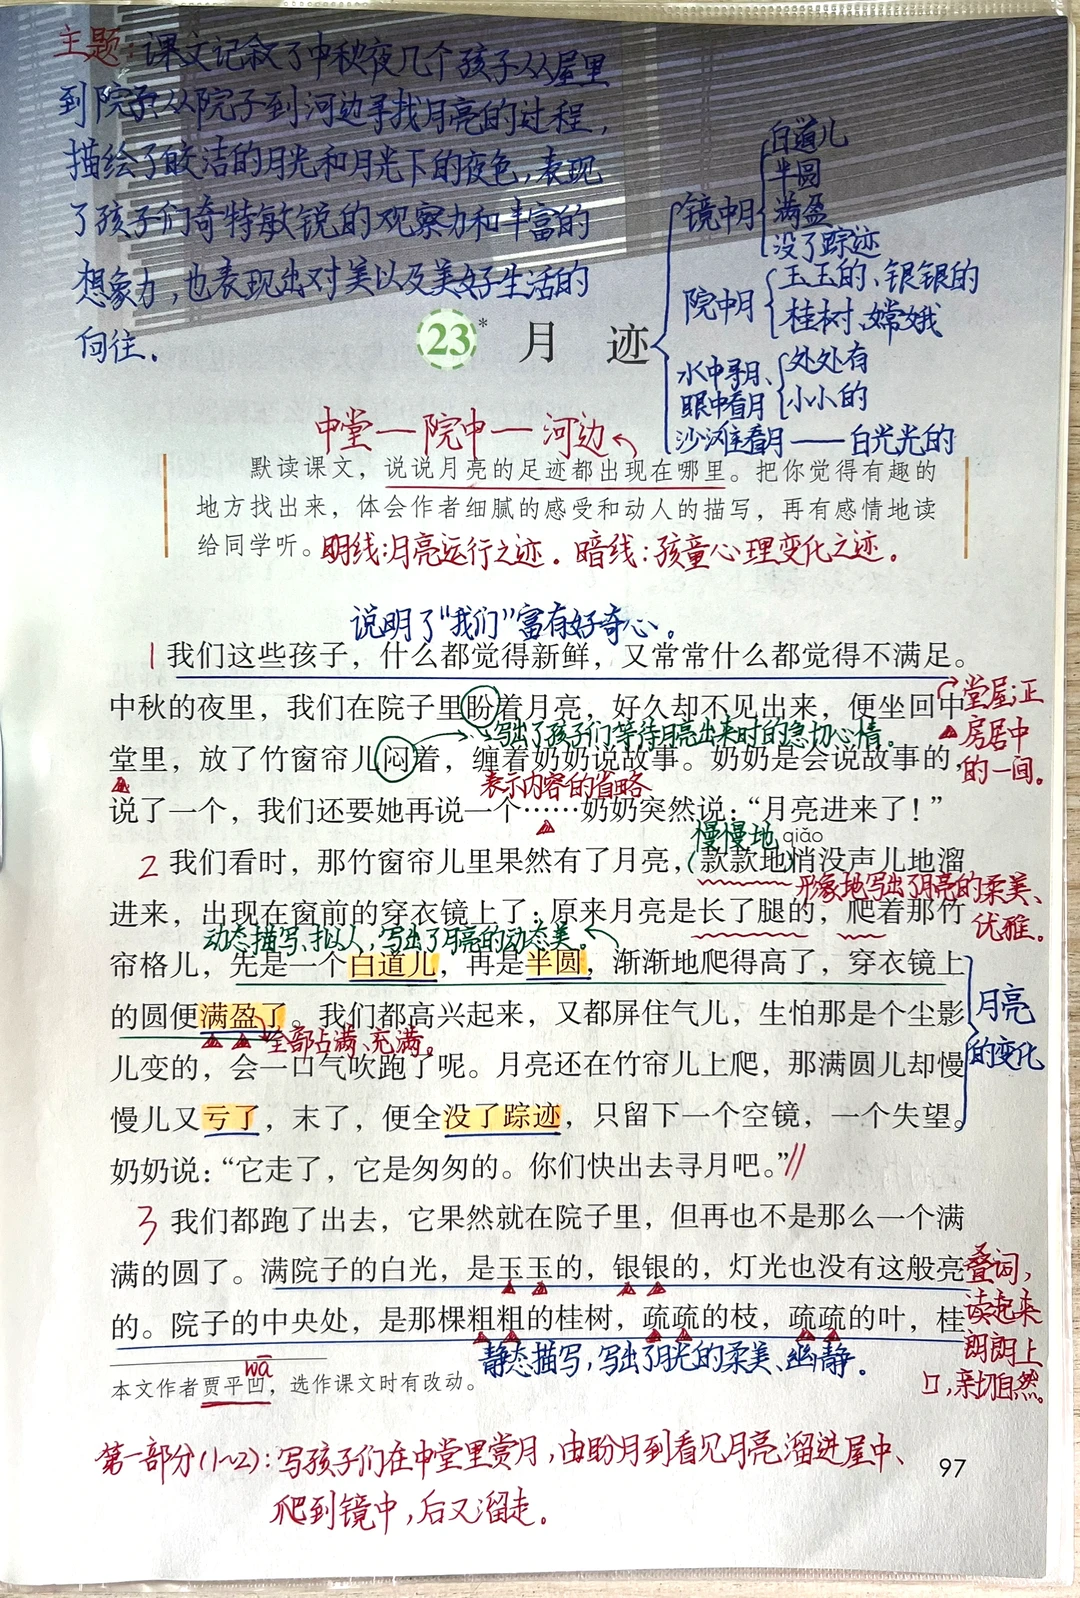 主题:课文记叙了中秋夜几个孩子从屋里
到院子、从院子到河边寻找月亮的过程,
描绘了皎洁的月光和月光下的夜色,表现
了孩子们奇特敏锐的观察力和丰富的
想象力,也表现出对美以及美好生活的
向往.
白道儿
半圆
镜中月
满盈
没了踪迹
玉玉的、银银的
院中月
桂树、嫦娥
水中寻月、
眼中看月
处处有
小小的
沙滩看月——白光光的
23* 月 迹
中堂—院中—河边
默读课文,说说月亮的足迹都出现在哪里。把你觉得有趣的
地方找出来,体会作者细腻的感受和动人的描写,再有感情地读
给同学听。
明线:月亮运行之迹。暗线:孩童心理变化之迹。
说明了“我们”富有好奇心。
1 我们这些孩子,什么都觉得新鲜,又常常什么都觉得不满足。
中秋的夜里,我们在院子里盼着月亮,好久却不见出来,便坐回中
堂屋:正
房居中
的一间。
写出了孩子们等待月亮出来时的急切心情。
堂里,放了竹窗帘儿闷着,缠着奶奶说故事。奶奶是会说故事的,
表示内容的省略
说了一个,我们还要她再说一个……奶奶突然说:“月亮进来了!”
慢慢地
qiāo
2 我们看时,那竹窗帘儿里果然有了月亮,款款地悄没声儿地溜
形象地写出了月亮的柔美、
优雅。
进来,出现在窗前的穿衣镜上了:原来月亮是长了腿的,爬着那竹
动态描写、拟人,写出了月亮的动态美。
帘格儿,先是一个白道儿,再是半圆,渐渐地爬得高了,穿衣镜上
的圆便满盈了。我们都高兴起来,又都屏住气儿,生怕那是个尘影
全部占满、充满。
月亮
的变化
儿变的,会一口气吹跑了呢。月亮还在竹帘儿上爬,那满圆儿却慢
慢儿又亏了,末了,便全没了踪迹,只留下一个空镜,一个失望。
奶奶说:“它走了,它是匆匆的。你们快出去寻月吧。”//
3 我们都跑了出去,它果然就在院子里,但再也不是那么一个满
满的圆了。满院子的白光,是玉玉的,银银的,灯光也没有这般亮
的。院子的中央处,是那棵粗粗的桂树,疏疏的枝,疏疏的叶,桂
叠词,
读起来
朗朗上
口,亲切自然。
静态描写,写出了月光的柔美、幽静。
wā
本文作者贾平凹,选作课文时有改动。
第一部分(1~2):写孩子们在中堂里赏月,由盼月到看见月亮溜进屋中、
爬到镜中,后又溜走。
97